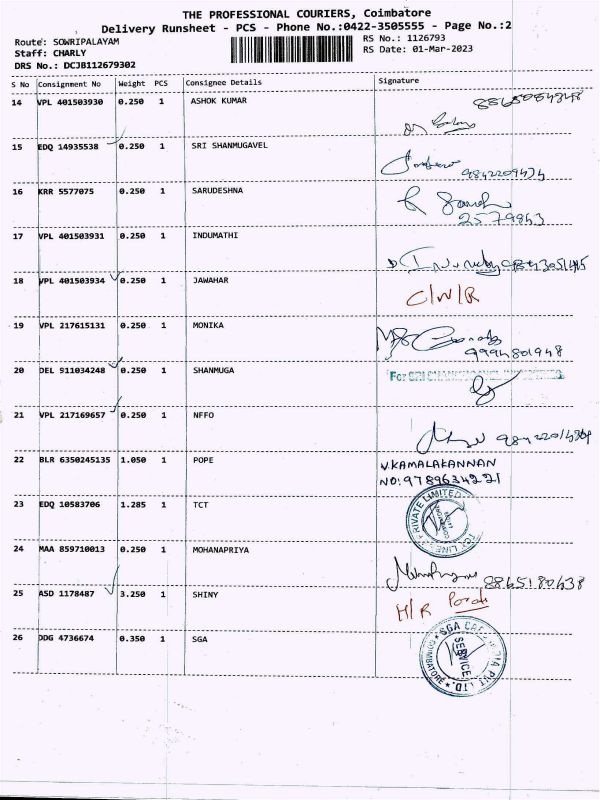 THE PROFESSIONAL COURIERS, Coimbatore
Delivery Runsheet - PCS - Phone No.:0422-3505555 - Page No.:2
Route: SOWRIPALAYAM
RS No.: 1126793
Staff: CHARLY
RS Date: 01-Mar-2023
DRS No.: DCJB112679302
S No Consignment No Weight PCS Consignee Details Signature
14 VPL 401503930 0.250 1 ASHOK KUMAR
15 EDQ 14935538 0.250 1 SRI SHANMUGAVEL
9842209474
16 KRR 5577075 0.250 1 SARUDESHNA
2579843
17 VPL 401503931 0.250 1 INDUMATHI
18 VPL 401503934 0.250 1 JAWAHAR
C/N/R
19 VPL 217615131 0.250 1 MONIKA
9994801948
20 DEL 911034248 0.250 1 SHANMUGA
For SRI
21 VPL 217169657 0.250 1 NFFO
22 BLR 6350245135 1.050 1 POPE
V.KAMALAKANNAN
NO:9789634221
23 EDQ 10583706 1.285 1 TCT
PRIVATE LIMITED
24 MAA 859710013 0.250 1 MOHANAPRIYA
25 ASD 1178487 3.250 1 SHINY
H/R
26 DDG 4736674 0.350 1 SGA
SGA
SERVICE
COIMBATORE
PVT LTD.